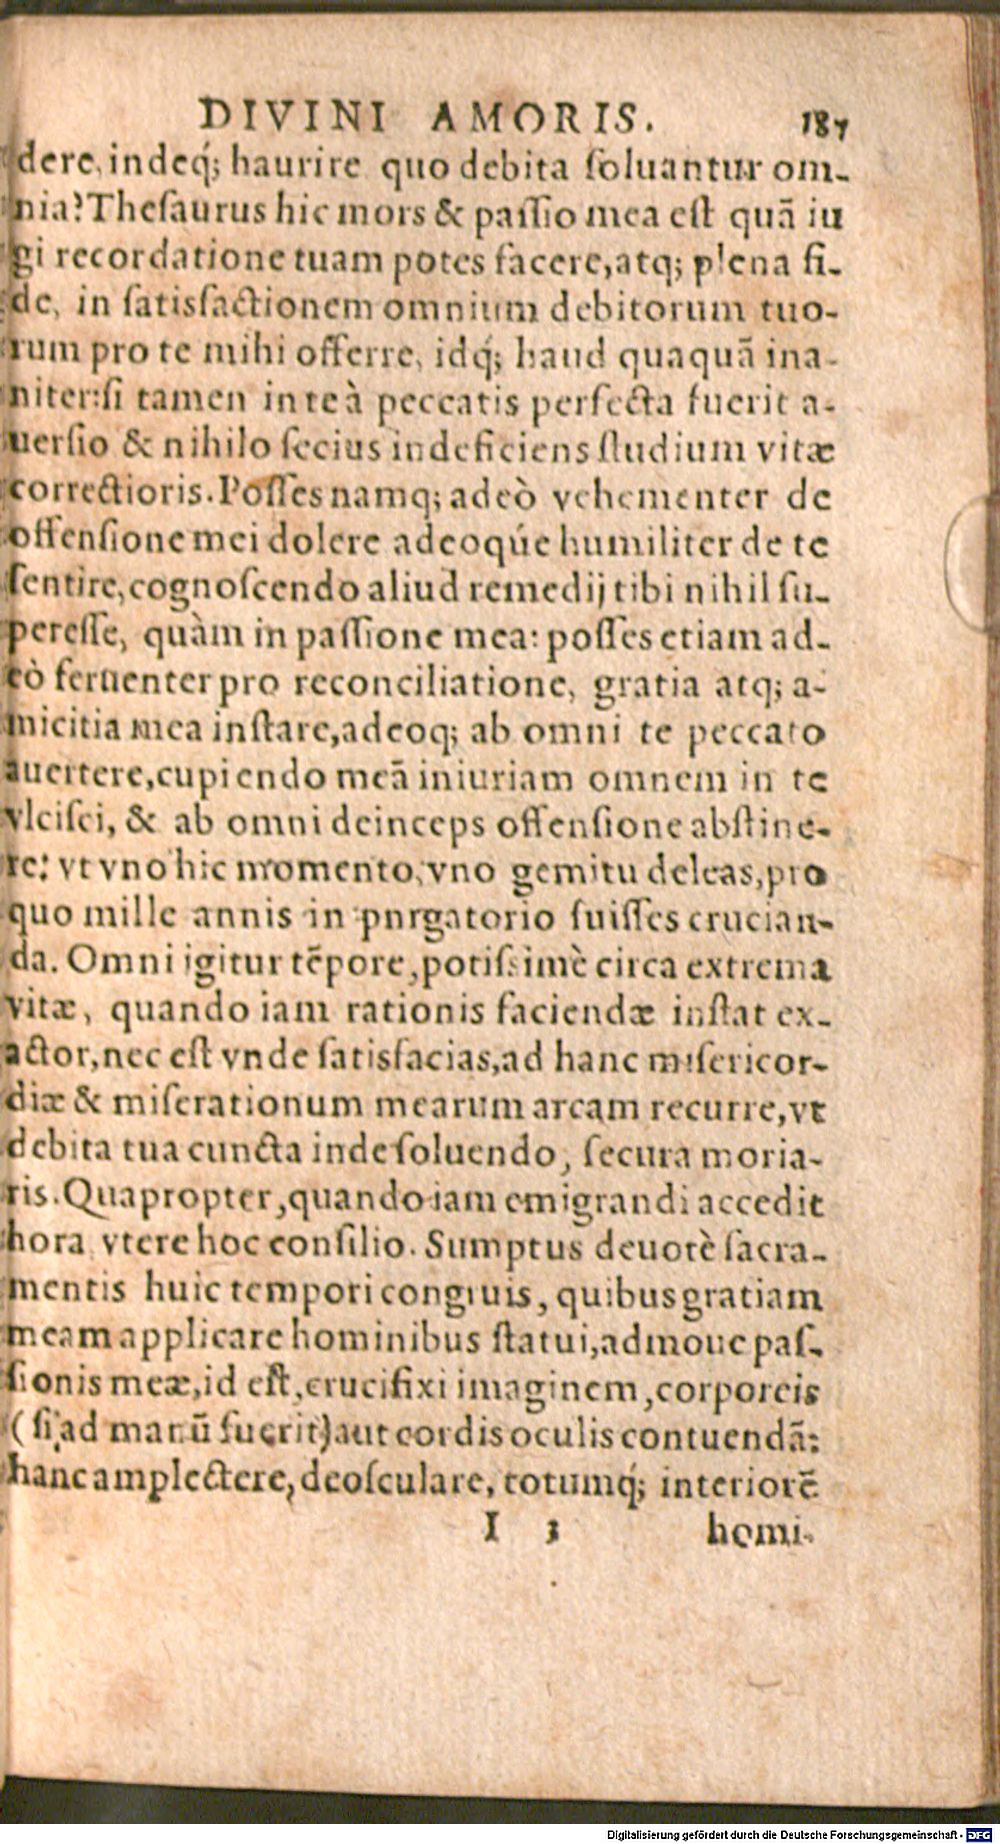 DIVINI AMORIS. 187
dere, indeq́; haurire quo debita ſoluantur om-
nia? Theſaurus hic mors & paſſio mea eſt quā iu
gi recordatione tuam potes facere, atq; plena fi-
de, in ſatisfactionem omnium debitorum tuo-
rum pro te mihi offerre, idq́; haud quaquā ina-
niter: ſi tamen in te à peccatis perfecta fuerit a-
uerſio & nihilo ſecius indeficiens ſtudium vitæ
correctioris. Poſſes namq; adeò vehementer de
offenſione mei dolere adeoqúe humiliter de te
ſentire, cognoſcendo aliud remedij tibi nihil ſu-
pereſſe, quàm in paſſione mea: poſſes etiam ad-
eò feruenter pro reconciliatione, gratia atq; a-
micitia mea inſtare, adeoq; ab omni te peccato
auertere, cupiendo meā iniuriam omnem in te
vlciſci, & ab omni deinceps offenſione abſtine-
re: vt vno hic momento, vno gemitu deleas, pro
quo mille annis in pnrgatorio fuiſſes crucian-
da. Omni igitur tēpore, potiſsimè circa extrema
vitæ, quando iam rationis faciendæ inſtat ex-
actor, nec eſt vnde ſatisfacias, ad hanc miſericor-
diæ & miſerationum mearum arcam recurre, vt
debita tua cuncta inde ſoluendo, ſecura moria-
ris. Quapropter, quando iam emigrandi accedit
hora vtere hoc conſilio. Sumptus deuotè ſacra-
mentis huic tempori congruis, quibus gratiam
meam applicare hominibus ſtatui, admoue paſ-
ſionis meæ, id eſt, crucifixi imaginem, corporeis
(ſi ad manū fuerit) aut cordis oculis contuendā:
hanc amplectere, deoſculare, totumq́; interiorē
I 3 homi-
Digitalisierung gefördert durch die Deutsche Forschungsgemeinschaft - DFG